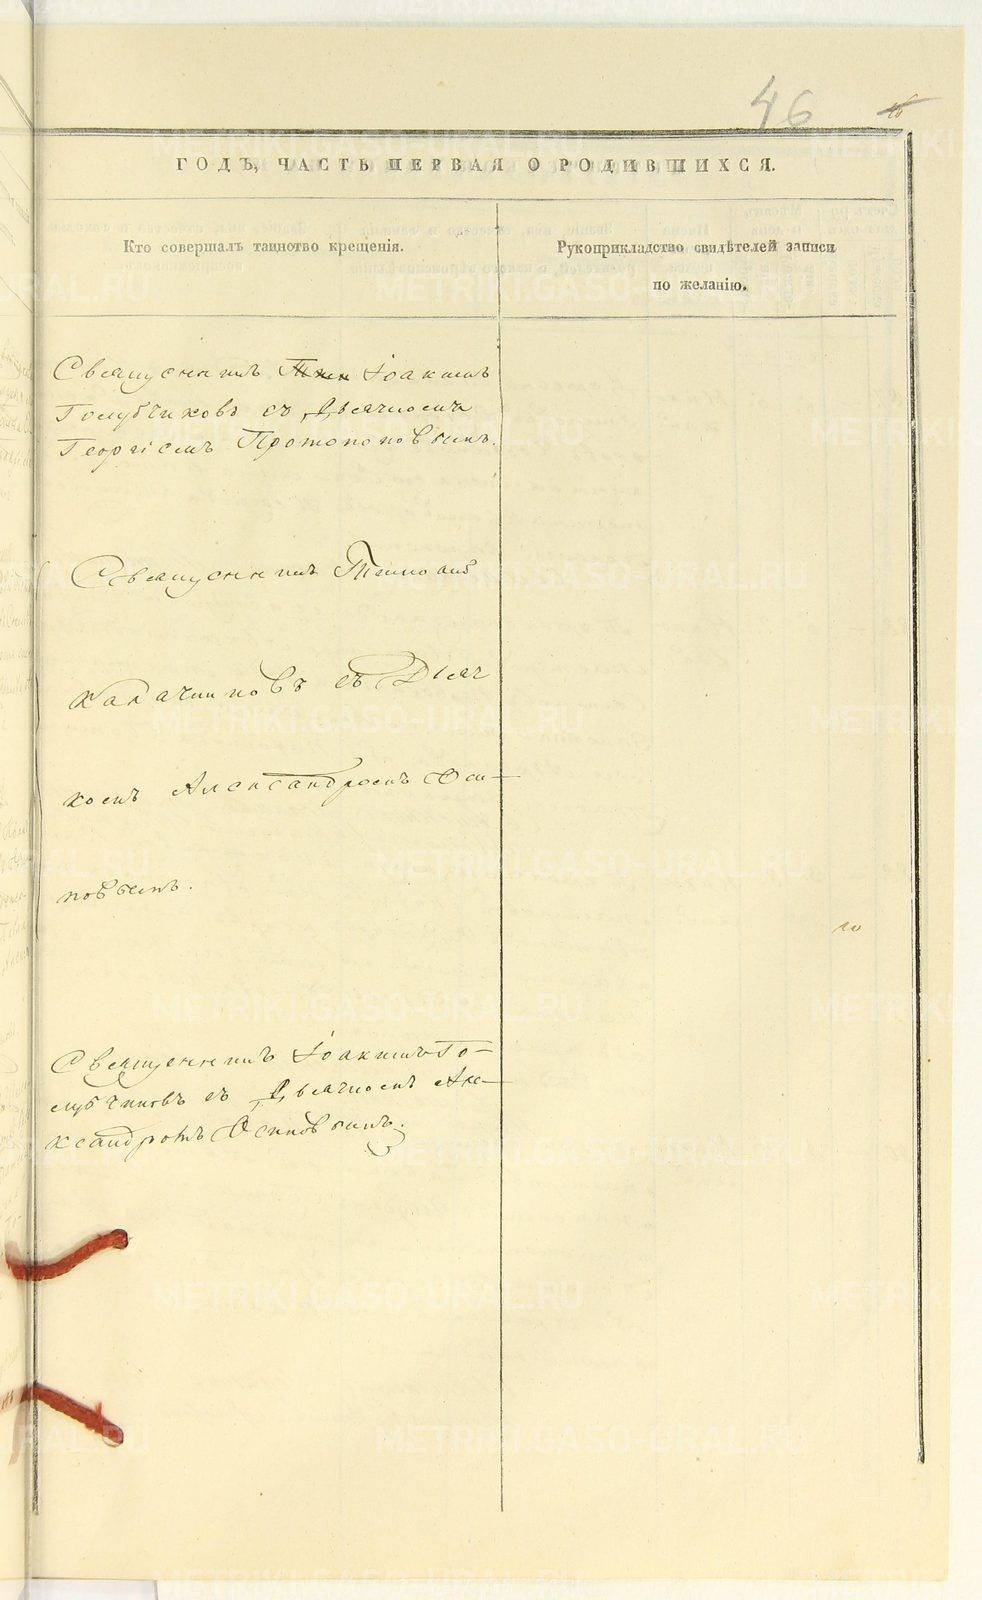 46
ГОДЪ, ЧАСТЬ ПЕРВАЯ О РОДИВШИХСЯ.
Кто совершалъ таинство крещенія.
Рукоприкладство свидѣтелей записи
по желанію.
Священникъ Іоакимъ
Голубчиковъ съ Дьячкомъ
Георгіемъ Протопоповымъ.
Священникъ Тимоѳей
Калачниковъ съ Дьяч
комъ Александромъ Оси-
повымъ.
Священникъ Іоакимъ Го-
лубчиковъ съ Дьячкомъ Але-
ксандромъ Осиповымъ.
METRIKI.GASO-URAL.RU